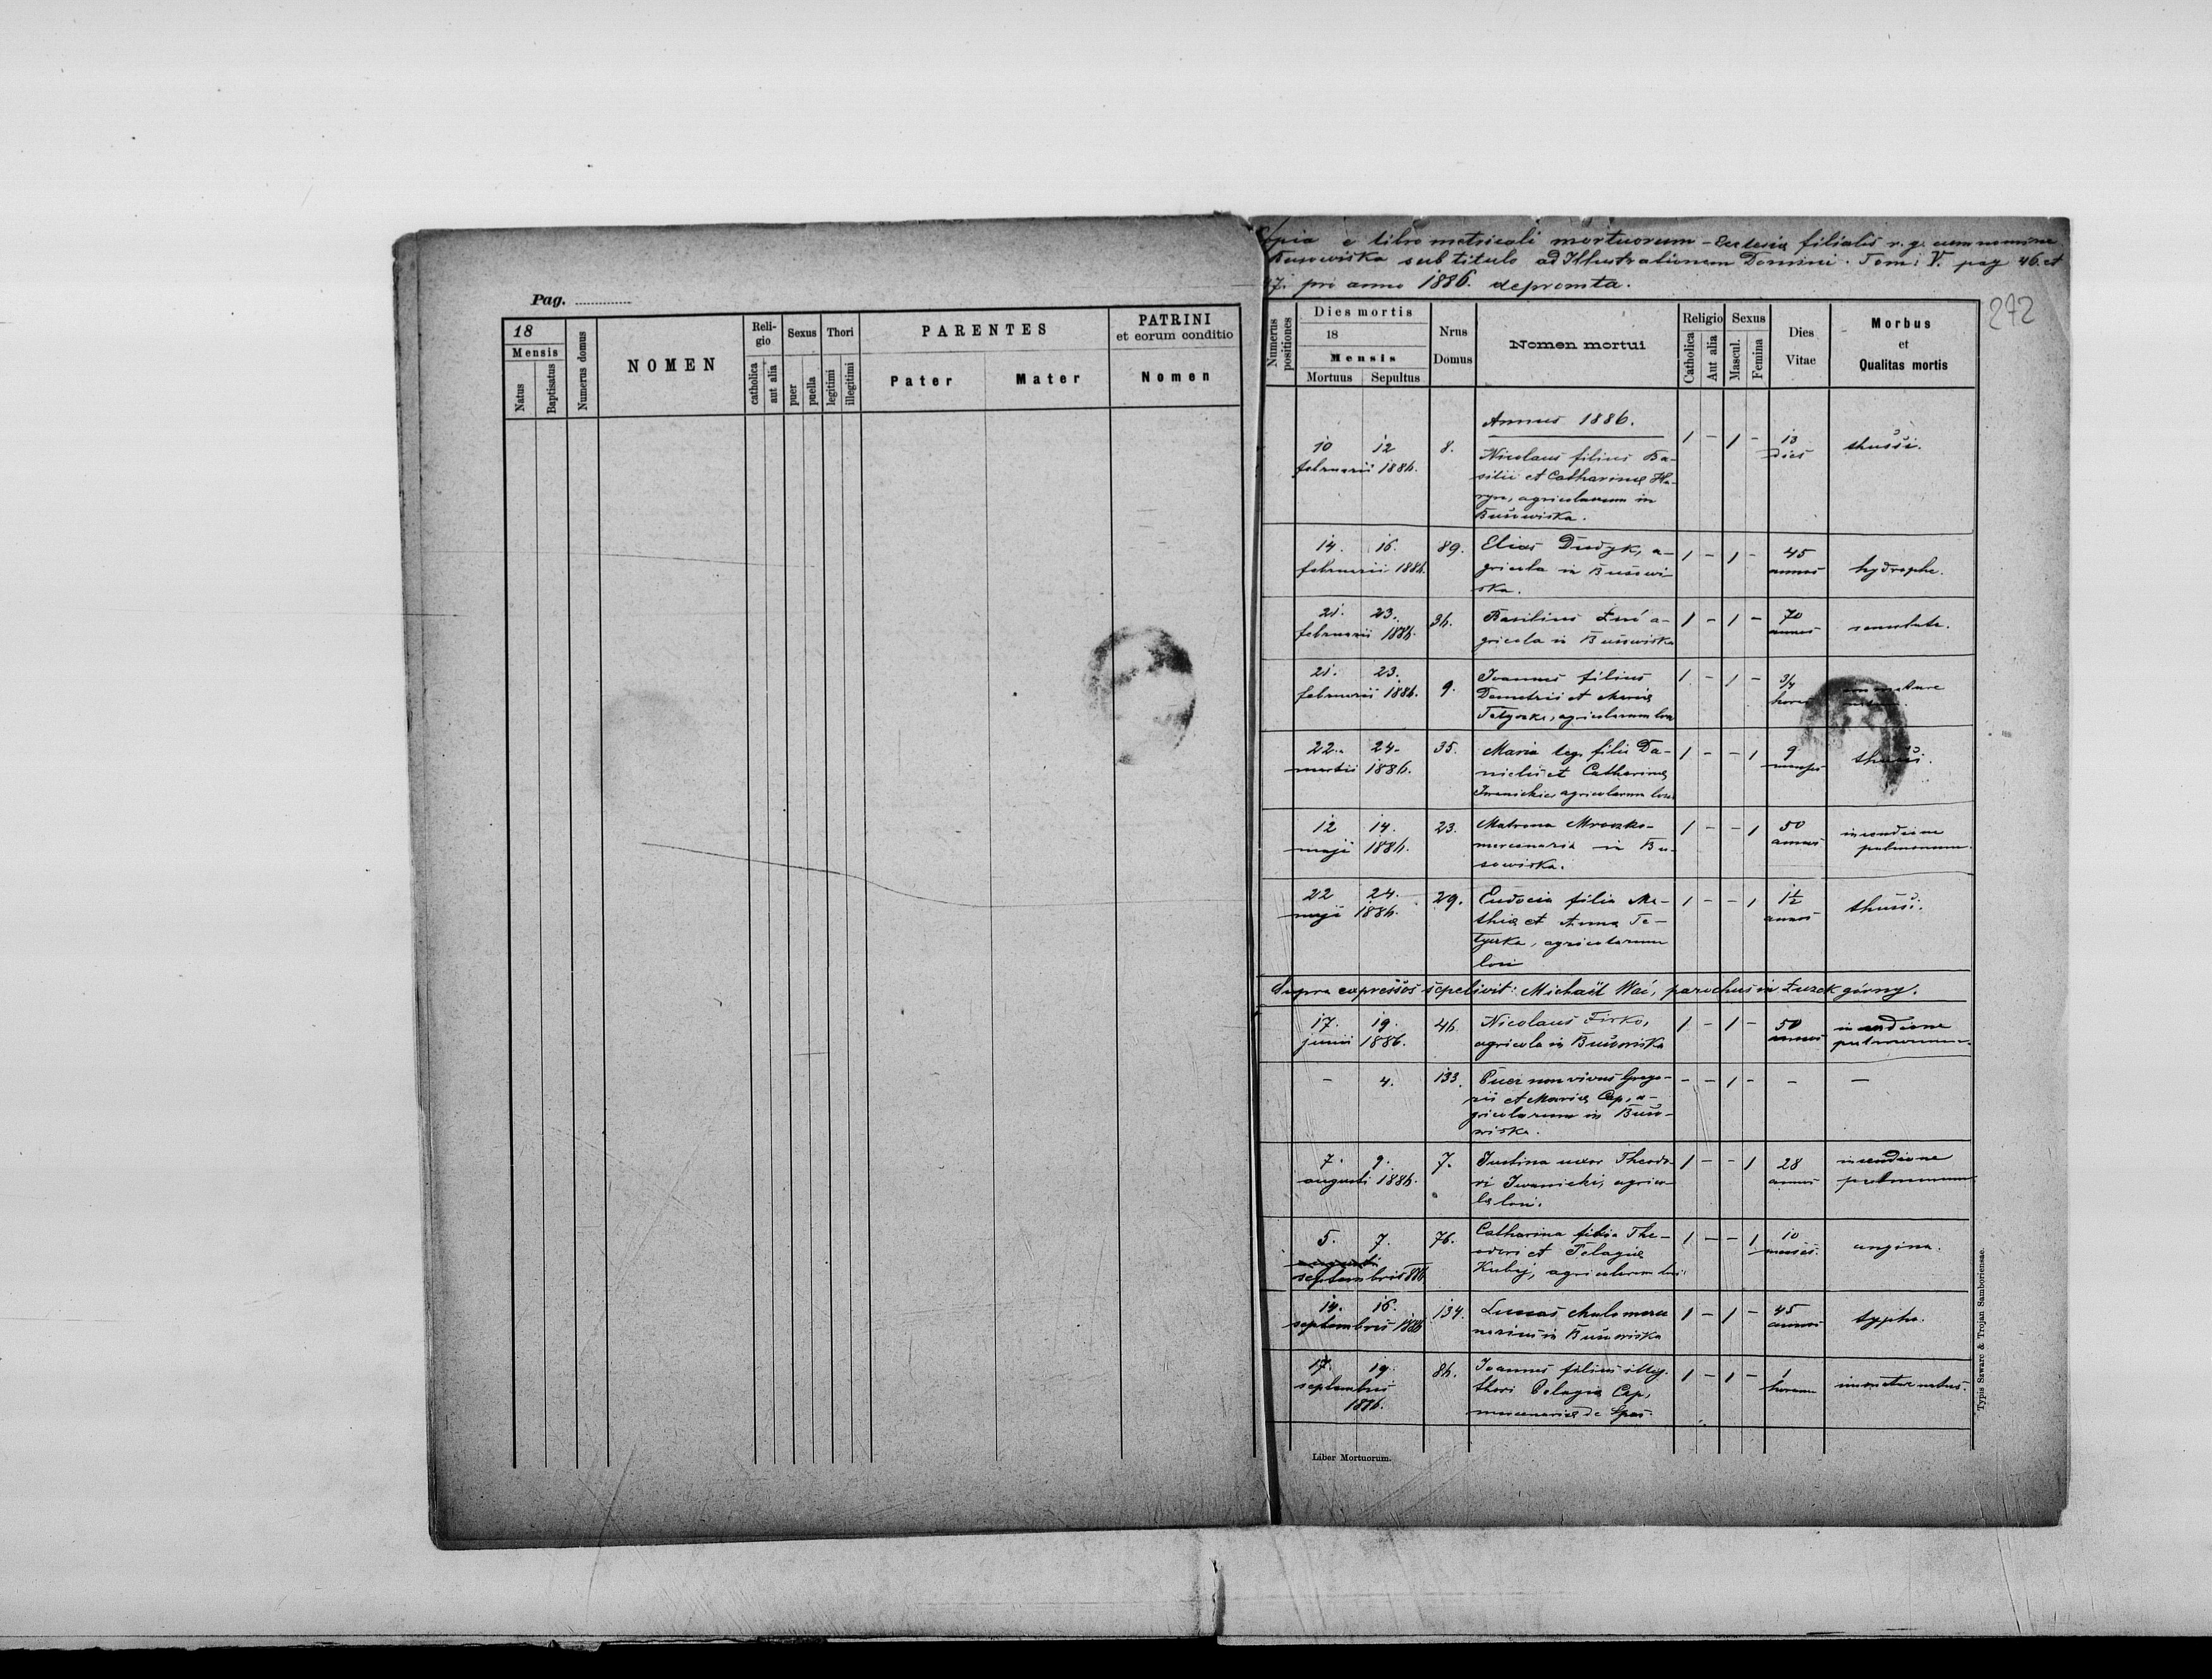 Pag.
18
Mensis
Natus
Baptisatus
Numerus domus
NOMEN
Reli-
gio
catholica
aut alia
Sexus
puer
puella
Thori
legitimi
illegitimi
PARENTES
Pater
Mater
PATRINI
et eorum conditio
Nomen
Copia e libro metricali mortuorum - Ecclesiæ filialis r. g. cum nomine
Busowiska sub titulo ad Illustrationem Domini. Tom: V. pag 46. et
47. pro anno 1886. depromta.
272
Numerus
positiones
Dies mortis
18
Mensis
Mortuus Sepultus
Nrus
Domus
Nomen mortui
Religio
Catholica
Aut alia
Sexus
Mascul.
Femina
Dies
Vitae
Morbus
et
Qualitas mortis
Annus 1886.
10 12
februarii 1886.
8.
Nicolaus filius Ba-
silii et Catharinæ
agricolarum in
Busowiska.
1 - 1 -
13
dies
thussi.
14. 16.
februarii 1886.
89.
Elias Dudyk, a-
gricola in Busowi-
ska.
1 - 1 -
45
annos
hydrophe.
21. 23.
februarii 1886.
36.
Basilius a-
gricola in Busowiska
1 - 1 -
70
annos
senectute.
21. 23.
februarii 1886.
9.
Joannes filius
Demetrii et Mariæ
agricolarum loci
1 - 1 -
3/4
horæ
22. 24.
martii 1886.
35.
Maria leg. filia Da-
nielis et Catharinæ
Iwanickie agricolarum loci
1 - - 1
9
menses
thussi.
12 14.
maji 1886.
23.
Matrona Mroczko-
mercenaria in Bu-
sowiska.
1 - - 1
50
annos
incendione
pulmonum.
22 24.
maji 1886.
29.
Eudocia filia Ma-
thiæ et Annæ Te-
tyczka, agricolarum
loci
1 - - 1
1 1/2
annos
thussi.
Supra expressos sepelivit: Michaël Wać, parochus in Łużek górny.
17. 19.
junii 1886.
46.
Nicolaus Firko,
agricola in Busowiska
1 - 1 -
50
annos
incendione
pulmonum.
- 4.
133.
Puer non vivus Grego-
rii et Mariæ Cap, a-
gricolarum in Buso-
wiska.
- - 1 -
-
-
7. 9.
augusti 1886.
7.
Justina uxor Theodo-
ri Iwanicki, agrico-
læ loci.
1 - - 1
28
annos
incendione
pulmonum
5. 7.
augusti
septembris 1886
76.
Catharina filia The-
odori et Pelagiæ
Kubej, agricolarum loci.
1 - - 1
10
menses.
angina.
14. 16.
septembris 1886
134.
Lucas merce
narius in Busowiska
1 - 1 -
45
annos
typho.
17. 19.
septembris
1886.
86.
Joannes filius illeg.
thori Pelagiæ Cap,
mercenariæ de Spas.
1 - 1 -
1
horam
immature natus.
Typis Szwarc & Trojan Samboriensae.
Liber Mortuorum.